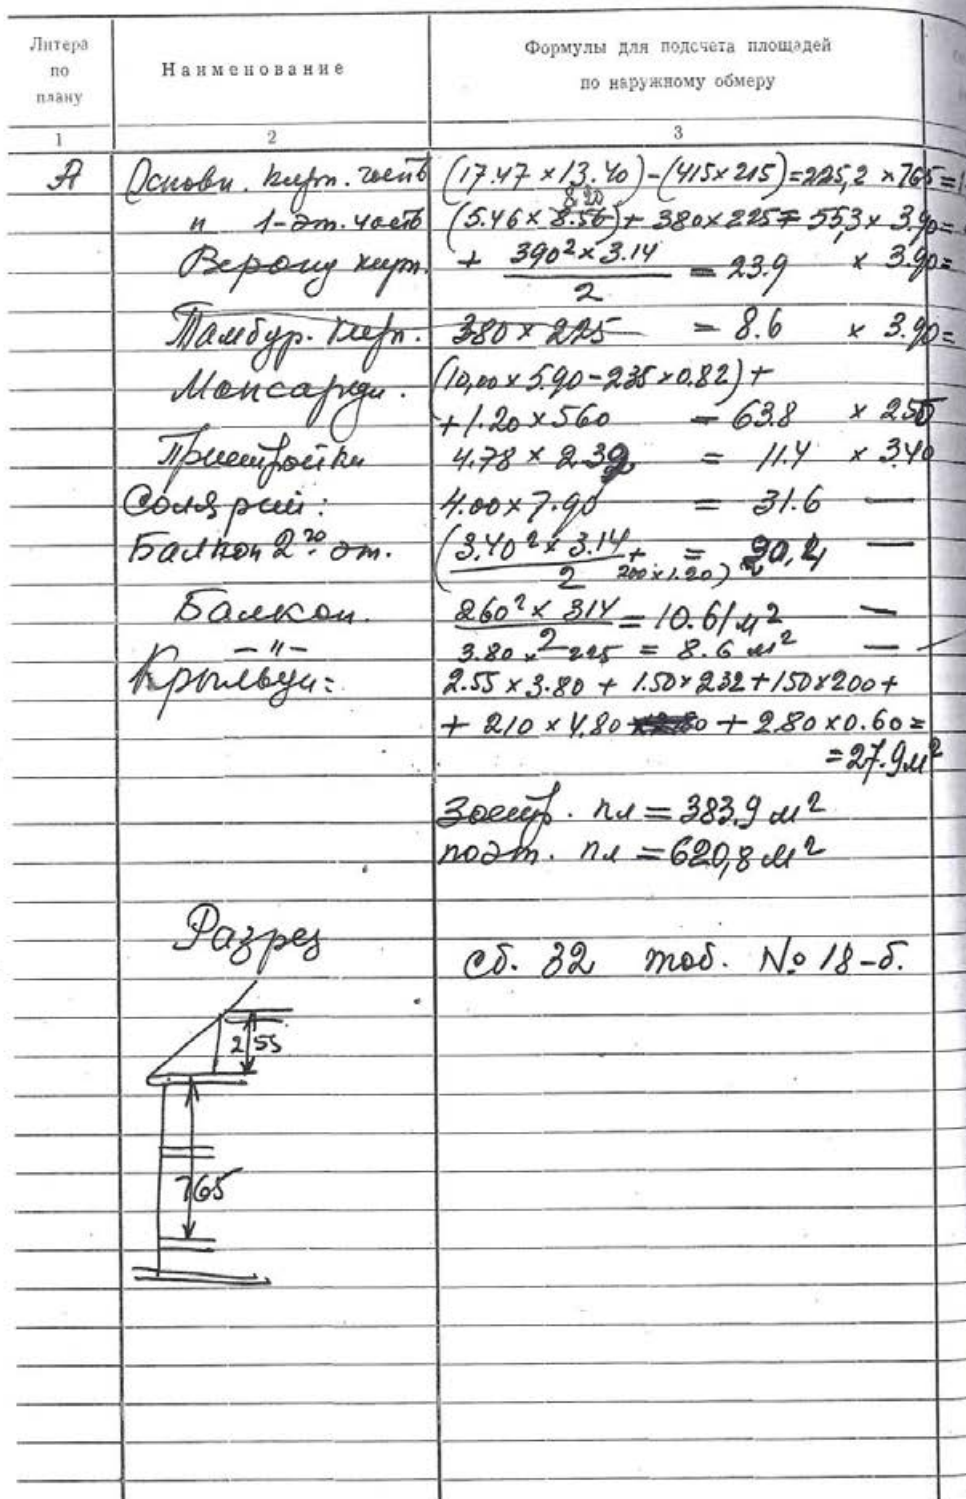 Литера по плану
Наименование
Формулы для подсчета площадей
по наружному обмеру
1 2 3
А Основн. кирп. часть (17.47 × 13.40) – (415 × 215) = 225,2 × 765 =
п 1-эт. часть (5.46 × 8.56) + 380 × 225 = 55,3 × 3.90 =
8.20
Веранд кирп. + 390² × 3.14 / 2 = 23.9 × 3.90 =
Тамбур. кирп. 380 × 225 = 8.6 × 3.90 =
Мансарды. (10,00 × 5.90 – 235 × 0.82) +
+ 1.20 × 560 = 63.8 × 255
Пристройки 4.78 × 2.39 = 11.4 × 340
Солярий: 4.00 × 7.90 = 31.6 —
Балкон 2го эт. (3.40² × 3.14 / 2 + 200 × 1.20) = 20,4 —
Балкон. 260² × 314 / 2 = 10.61 м² —
— " — 3.80 × 225 = 8.6 м² —
Крыльцы: 2.55 × 3.80 + 1.50 × 232 + 150 × 200 +
+ 210 × 4.80 + 2.80 × 0.60 =
= 27.9 м²
Застр. пл = 383.9 м²
поэт. пл = 620,8 м²
Разрез
сб. 32 таб. № 18-б.
2 55
765